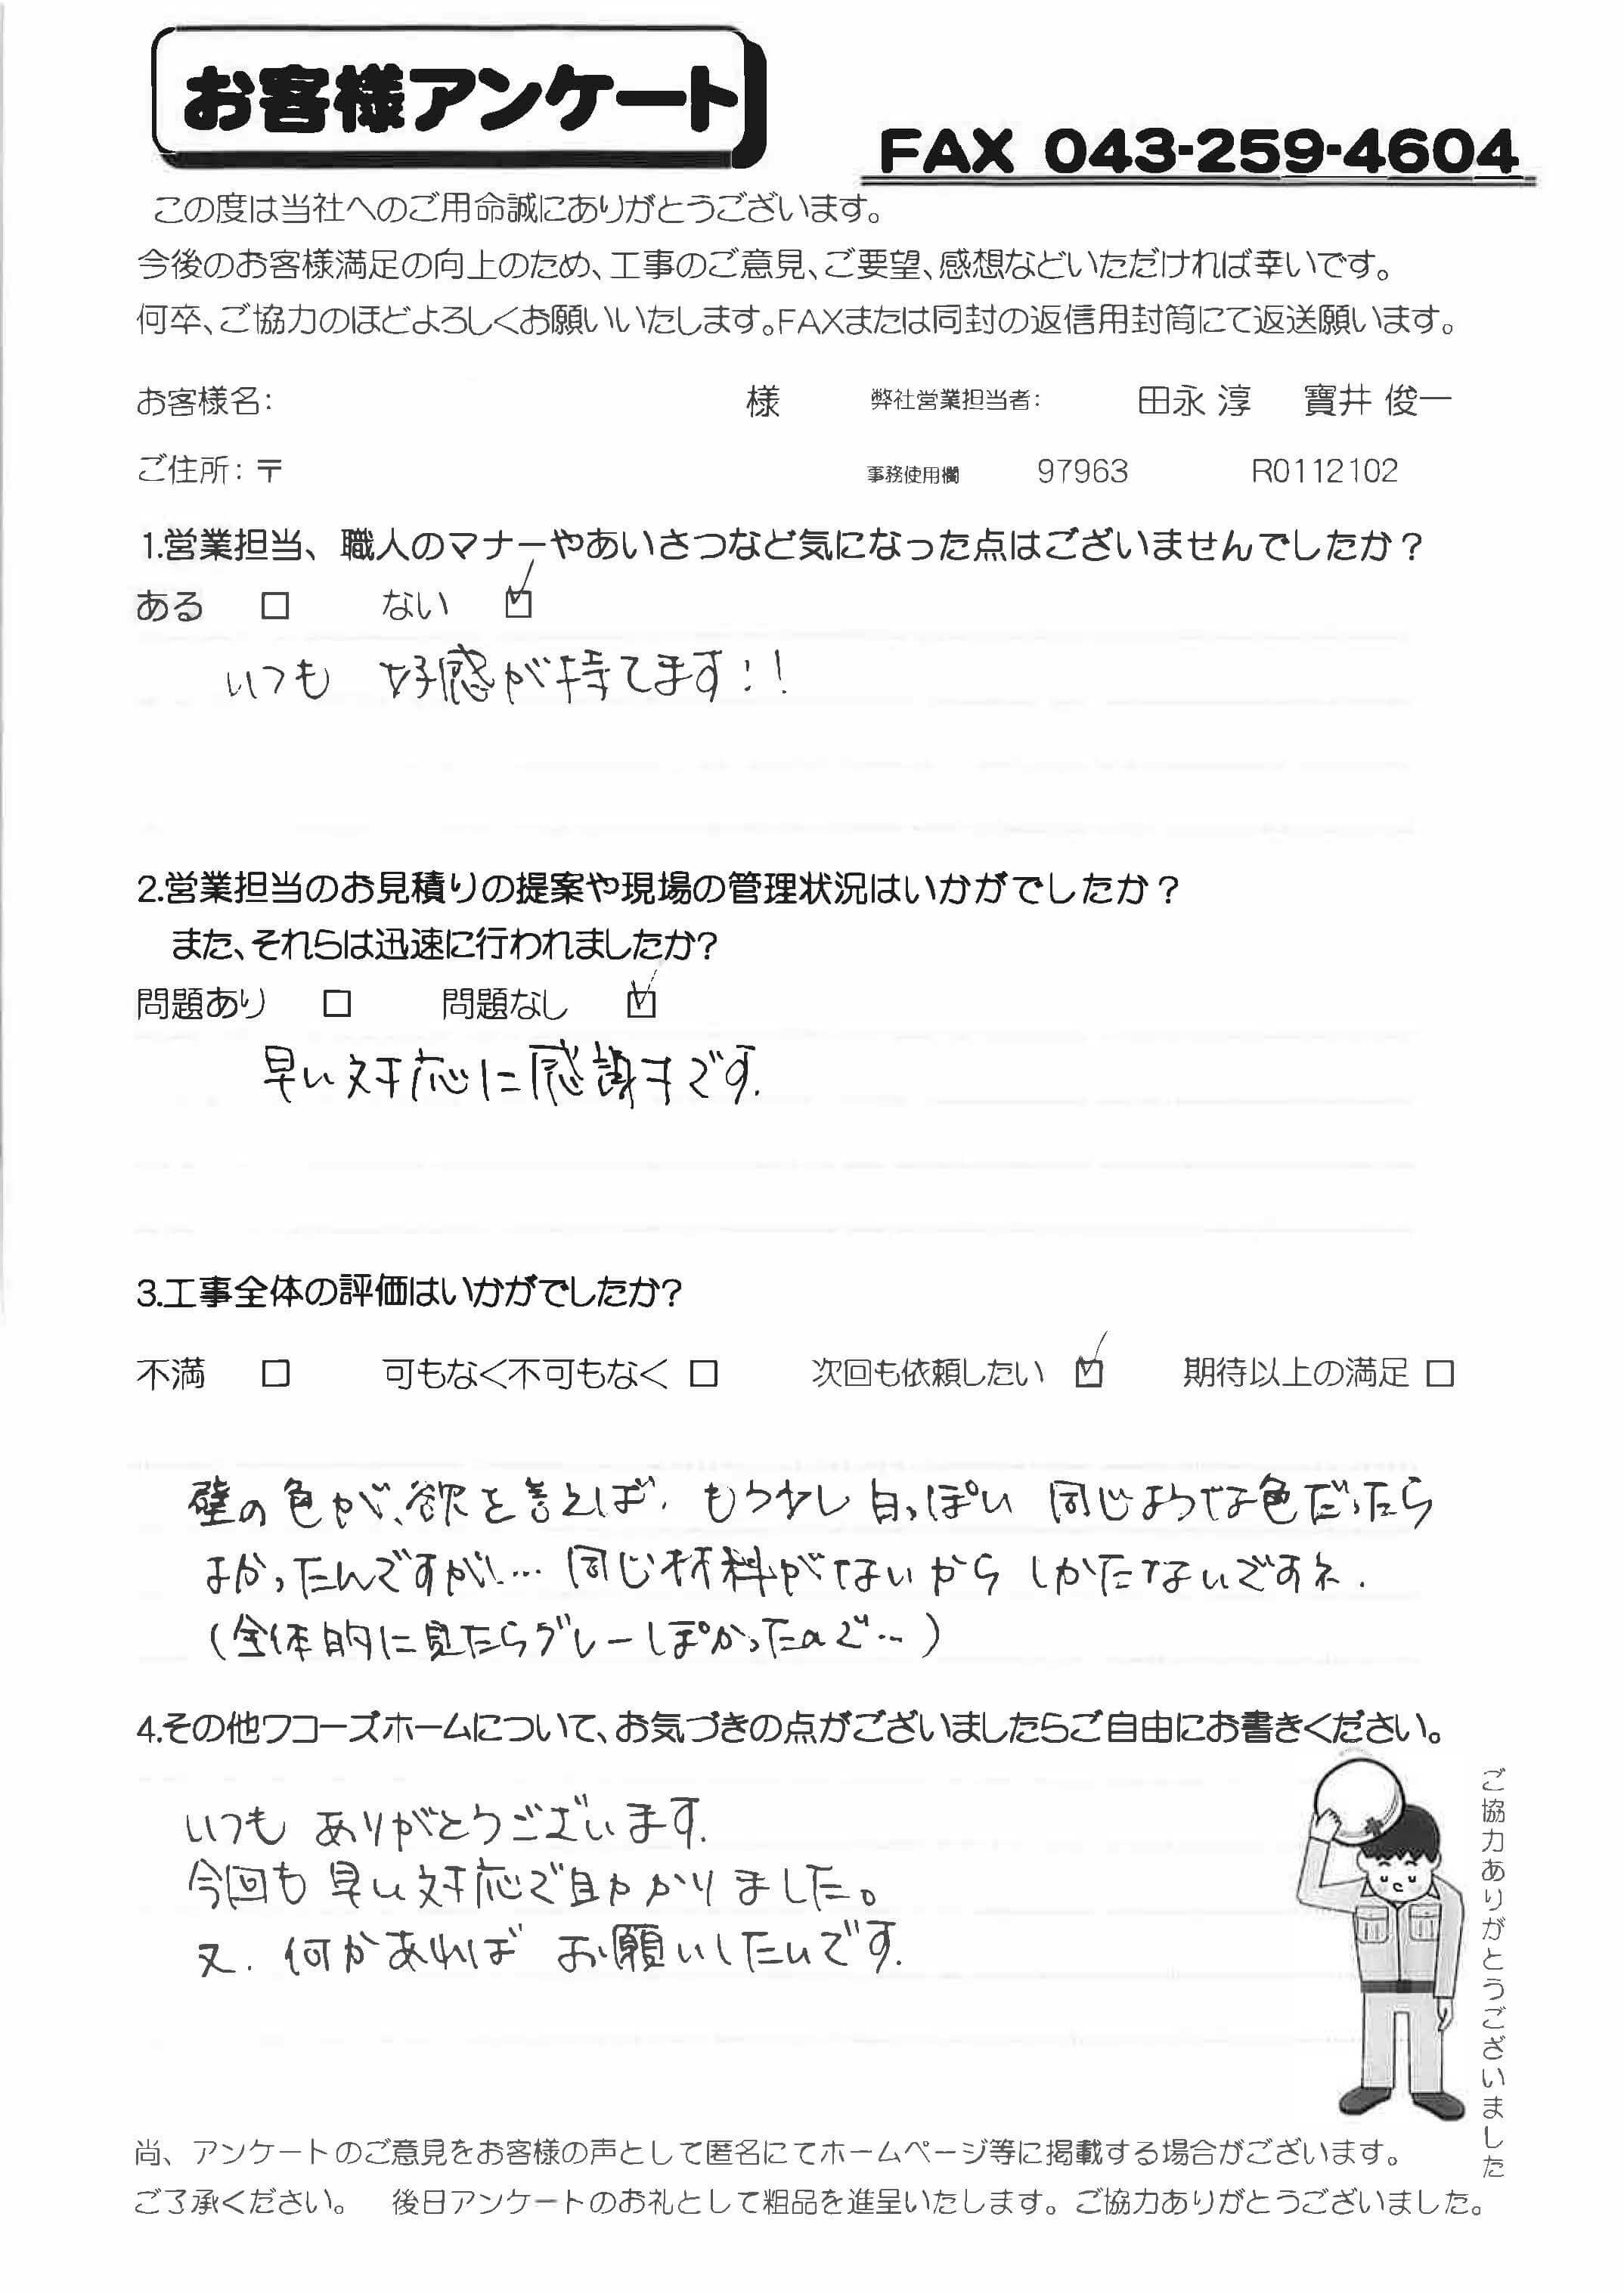 お客様アンケート
FAX 043-259-4604
この度は当社へのご用命誠にありがとうございます。
今後のお客様満足の向上のため、工事のご意見、ご要望、感想などいただければ幸いです。
何卒、ご協力のほどよろしくお願いいたします。FAXまたは同封の返信用封筒にて返送願います。
お客様名： 様 弊社営業担当者： 田永 淳 寳井 俊一
ご住所：〒 事務使用欄 97963 R0112102
1.営業担当、職人のマナーやあいさつなど気になった点はございませんでしたか？
ある □ ない ☑
いつも 好感が持てます！！
2.営業担当のお見積りの提案や現場の管理状況はいかがでしたか？
また、それらは迅速に行われましたか?
問題あり □ 問題なし ☑
早い対応に感謝すです.
3.工事全体の評価はいかがでしたか?
不満 □ 可もなく不可もなく □ 次回も依頼したい ☑ 期待以上の満足 □
壁の色が、欲を言えば、もう少し白っぽい 同じような色だったら
よかったんですが… 同じ材料がないから しかたないですネ.
(全体的に見たらグレーっぽかったので…)
4.その他ワコーズホームについて、お気づきの点がございましたらご自由にお書きください。
いつも ありがとうございます.
今回も 早い対応で助かりました。
又. 何かあれば お願いしたいです.
ご協力ありがとうございました
尚、アンケートのご意見をお客様の声として匿名にてホームページ等に掲載する場合がございます。
ご了承ください。 後日アンケートのお礼として粗品を進呈いたします。ご協力ありがとうございました。